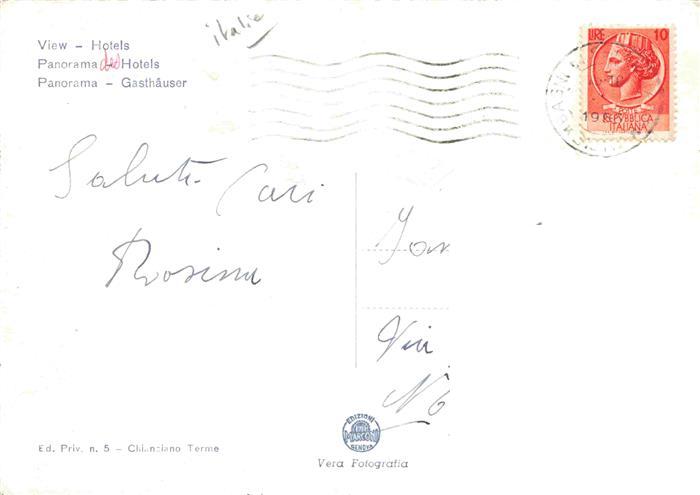 italie
View - Hotels
Panorama des Hotels
Panorama - Gasthäuser
LIRE 10
POSTE
REPVBBLICA
ITALIANA
Saluti Cari
Rosina
Via
EDIZIONI
MARCONI
GENOVA
Ed. Priv. n. 5 - Chianciano Terme
Vera Fotografia